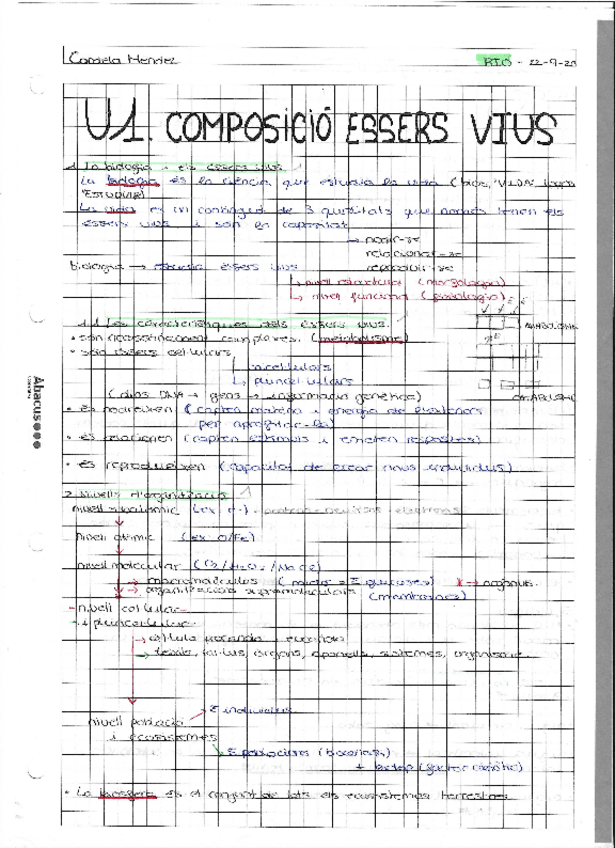 BIO - 22-9-20
U1. COMPOSICIÓ ESSERS VIUS
1. La biologia i els éssers vius
La biologia és la ciència que estudia la vida (bios, VIDA, logos
ESTUDIAR)
La vida és un contingut de 3 qualitats que només tenen els
éssers vius i són la capacitat
→ nodrir-se
relacionar-se
reproduir-se
biologia → estudia éssers vius
↳ nivell estructural (morfologia)
↳ nivell funcional (fisiologia)
1.1 Les característiques dels éssers vius.
• són necessàriament complexes. (metabolisme)
ANABOLISME
• són éssers cel·lulars
unicel·lulars
↳ pluricel·lulars
CATABOLISME
DNA → gens → informació genètica)
• es nodreixen (capten matèria i energia de l'exterior
per apropiar-se)
• es relacionen (capten estímuls i emeten respostes)
• es reprodueixen (capacitat de crear nous individus)
2. Nivells d'organització
nivell subatòmic
protons neutrons electrons
nivell atòmic (ex O/Fe)
nivell molecular
→ macromolècules
→ organització supramolecular (membranes)
- nivell cel·lular
pluricel·lular
→ cèl·lula procariota i eucariota
→ teixits, òrgans, aparells, sistemes, organisme
nivell població
Σ individus
i ecosistemes
Σ poblacions
+ biòtop (factor abiòtic)
• La biosfera és el conjunt de tots els ecosistemes terrestres
Abacus